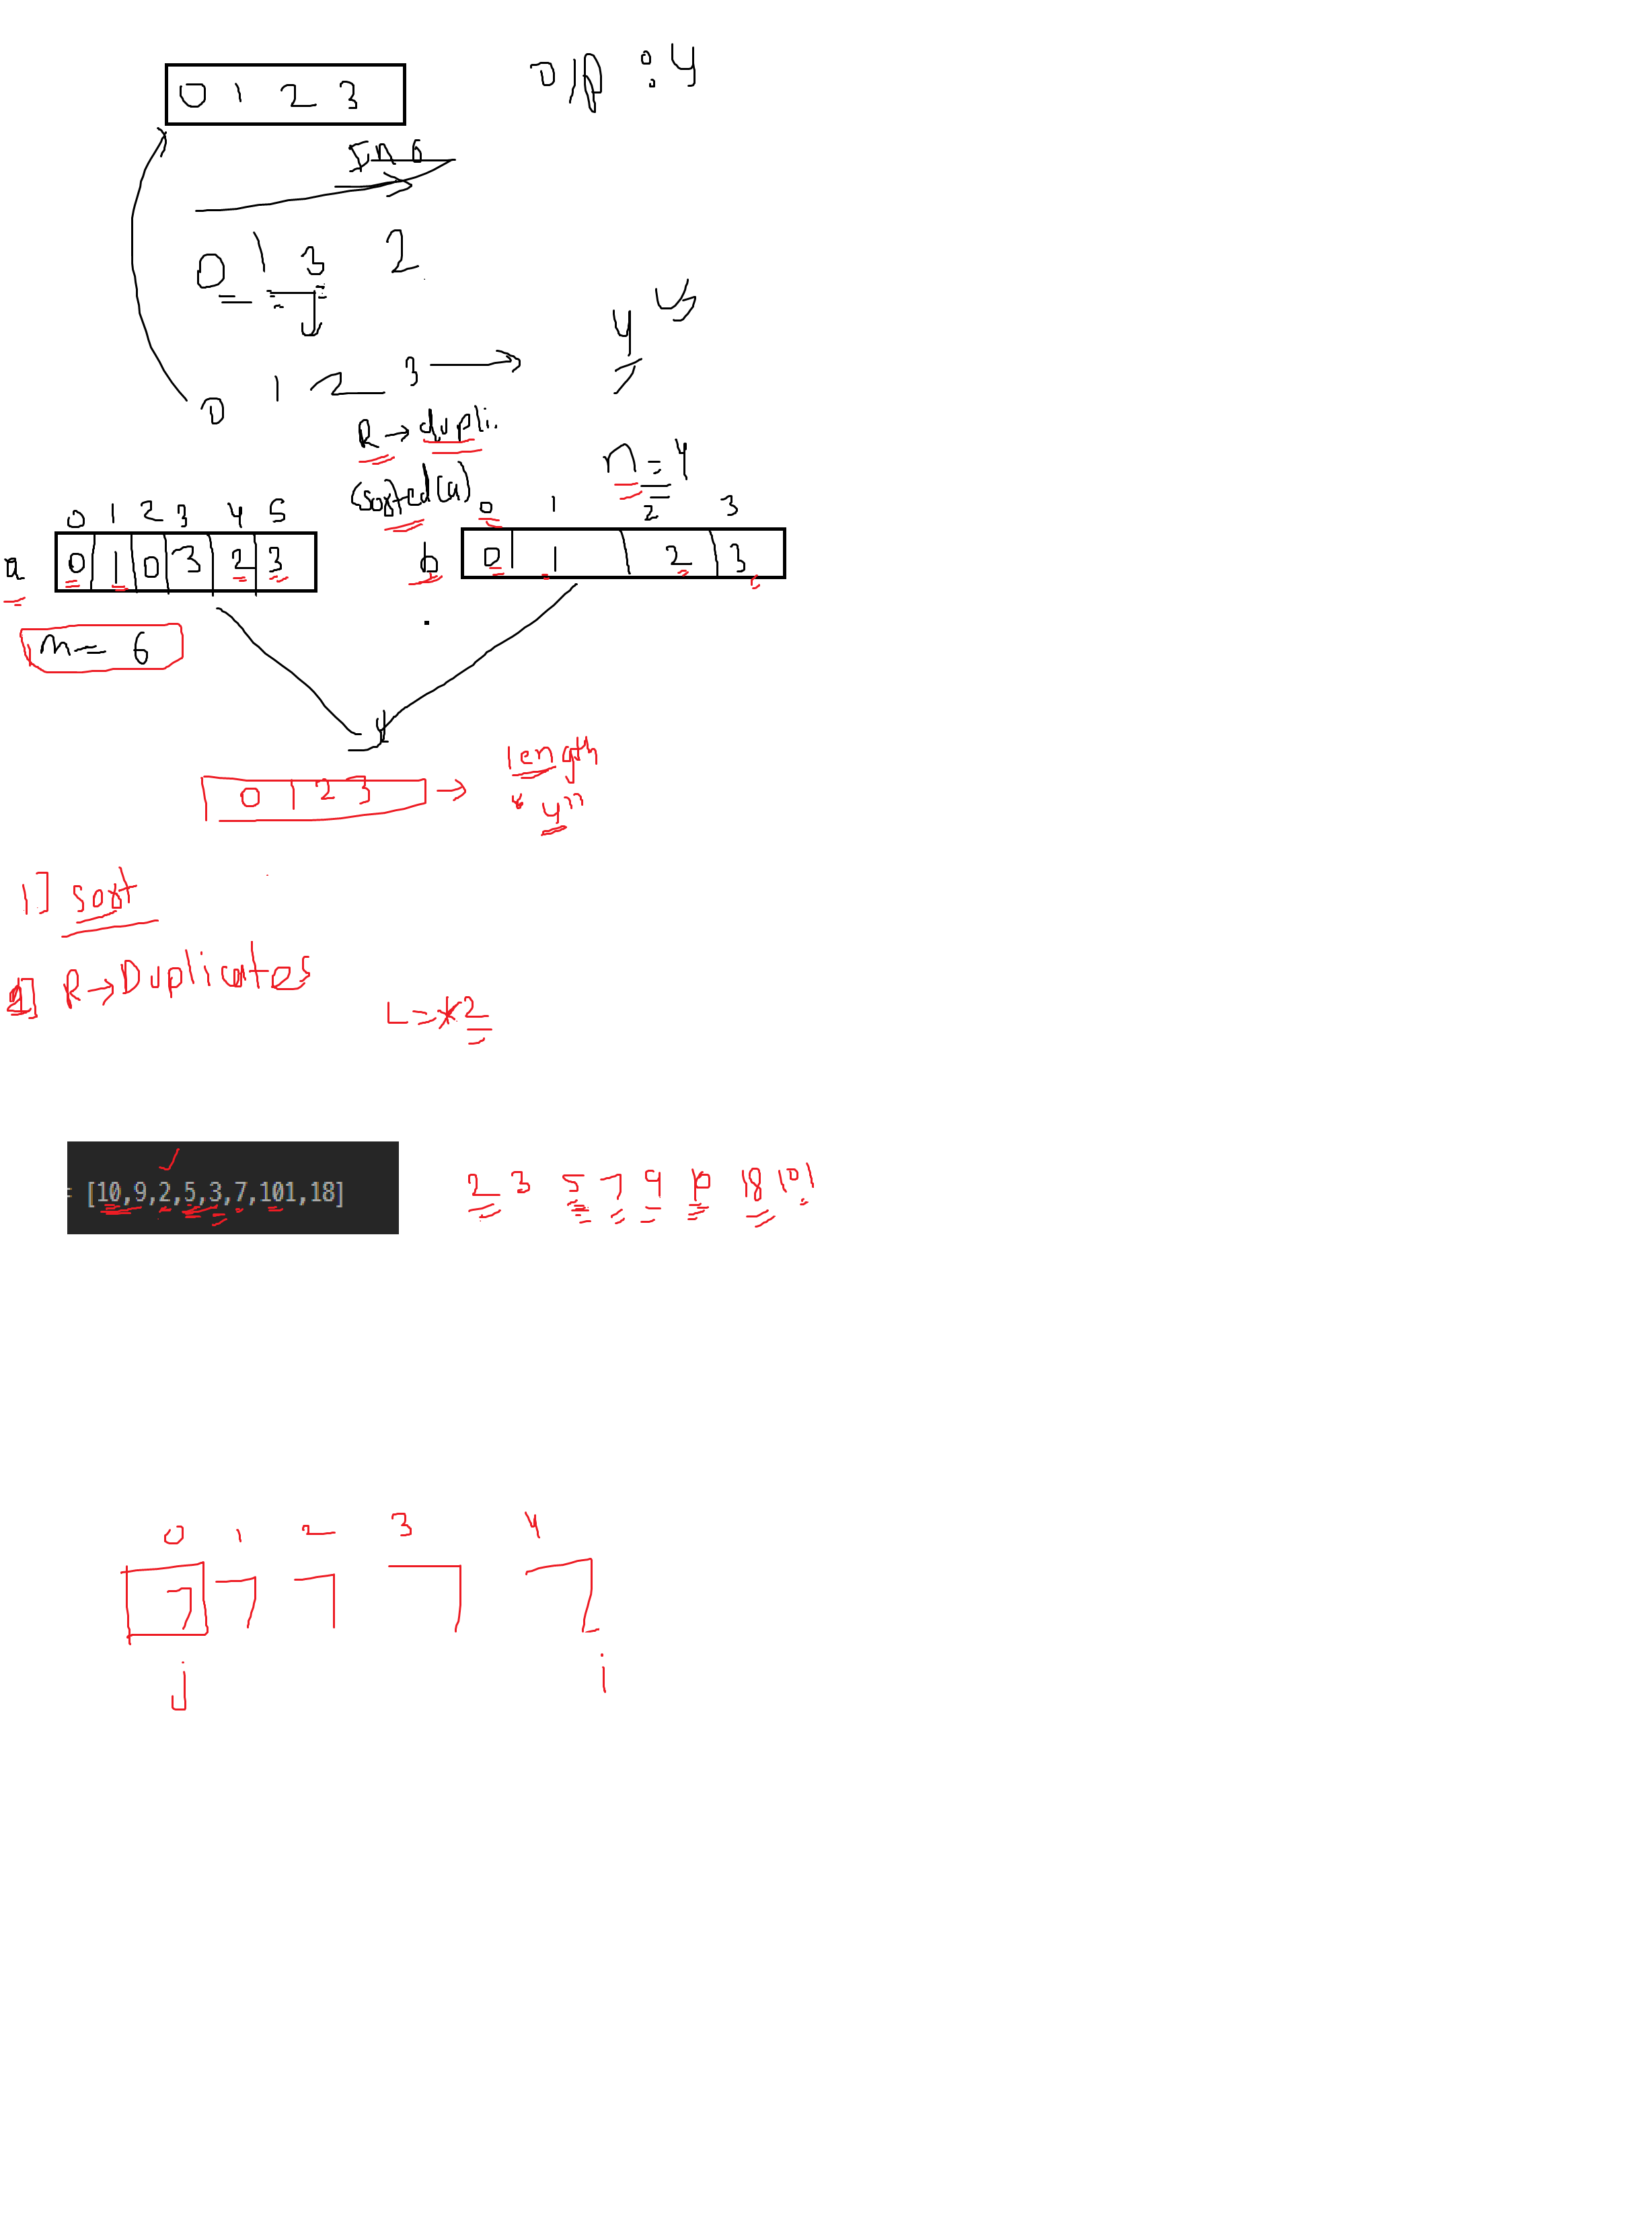 0 1 2 3
o/p : 4
0 1 3 2
0 1 2 3 → 4
R → dupli.
n = 4
(sorted(a)
0 1 2 3 4 5
0 1 2 3
a 0 1 0 3 2 3
b 0 1 2 3
n = 6
4
0 1 2 3 → length
"4"
1] sort
2] R → Duplicates
L = 2
= [10,9,2,5,3,7,101,18]
2 3 5 7 9 10 18 101
0 1 2 3 4
7 7 7 7 7
j i